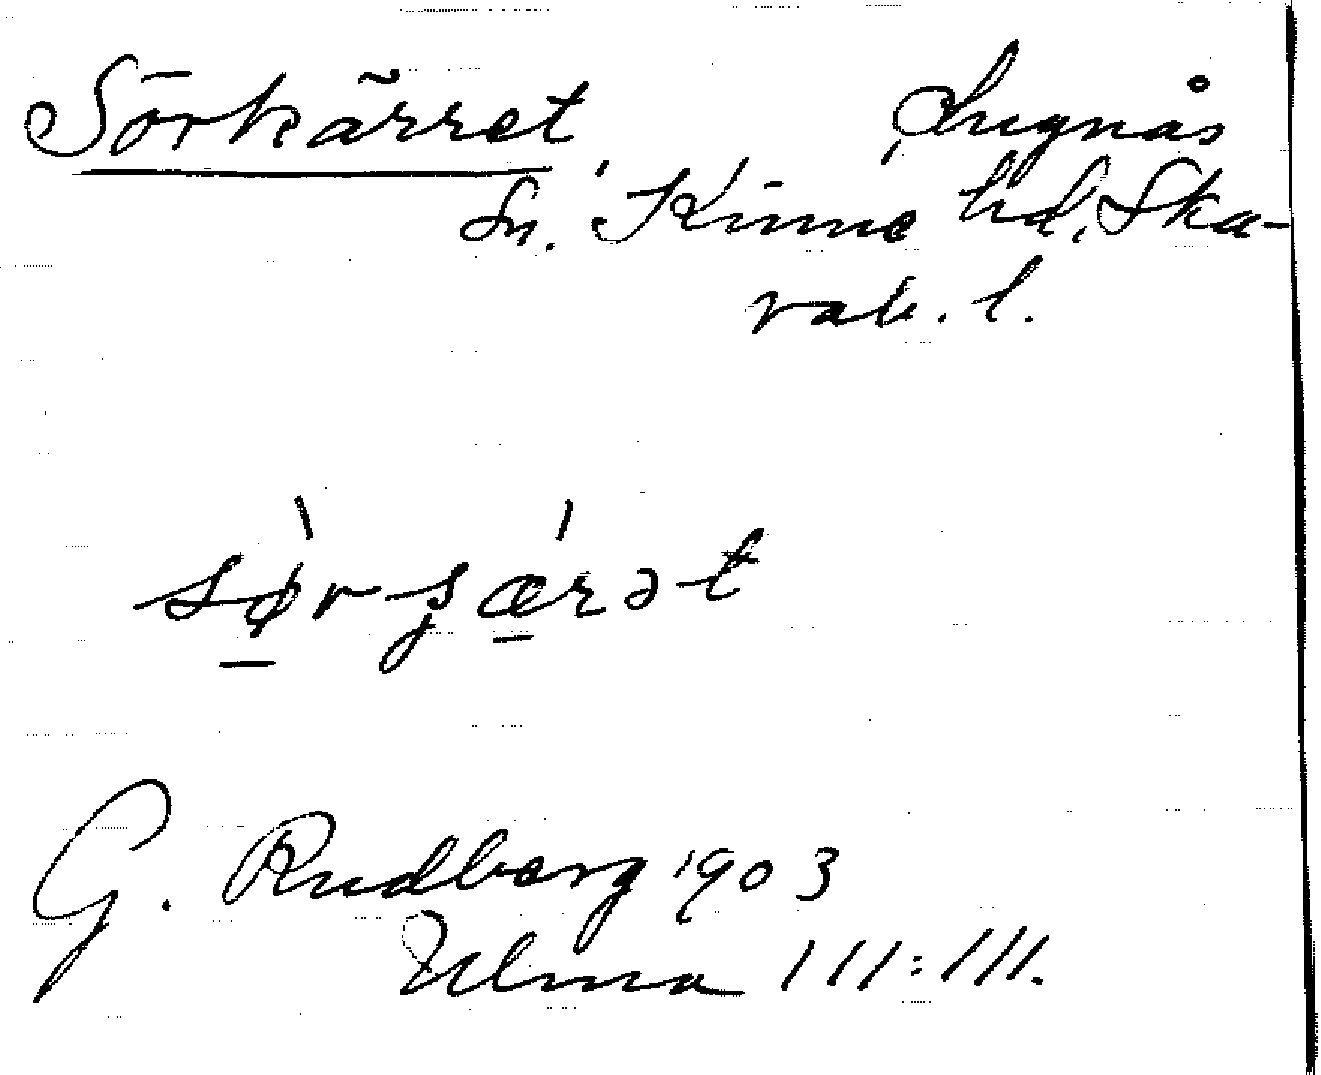 Sörkärret Lugnås
sn. Kinne hd, Ska-
rab. l.
sø̱̀rʂǽ̱rət
G. Rudberg 1903
Ulma 111:111.